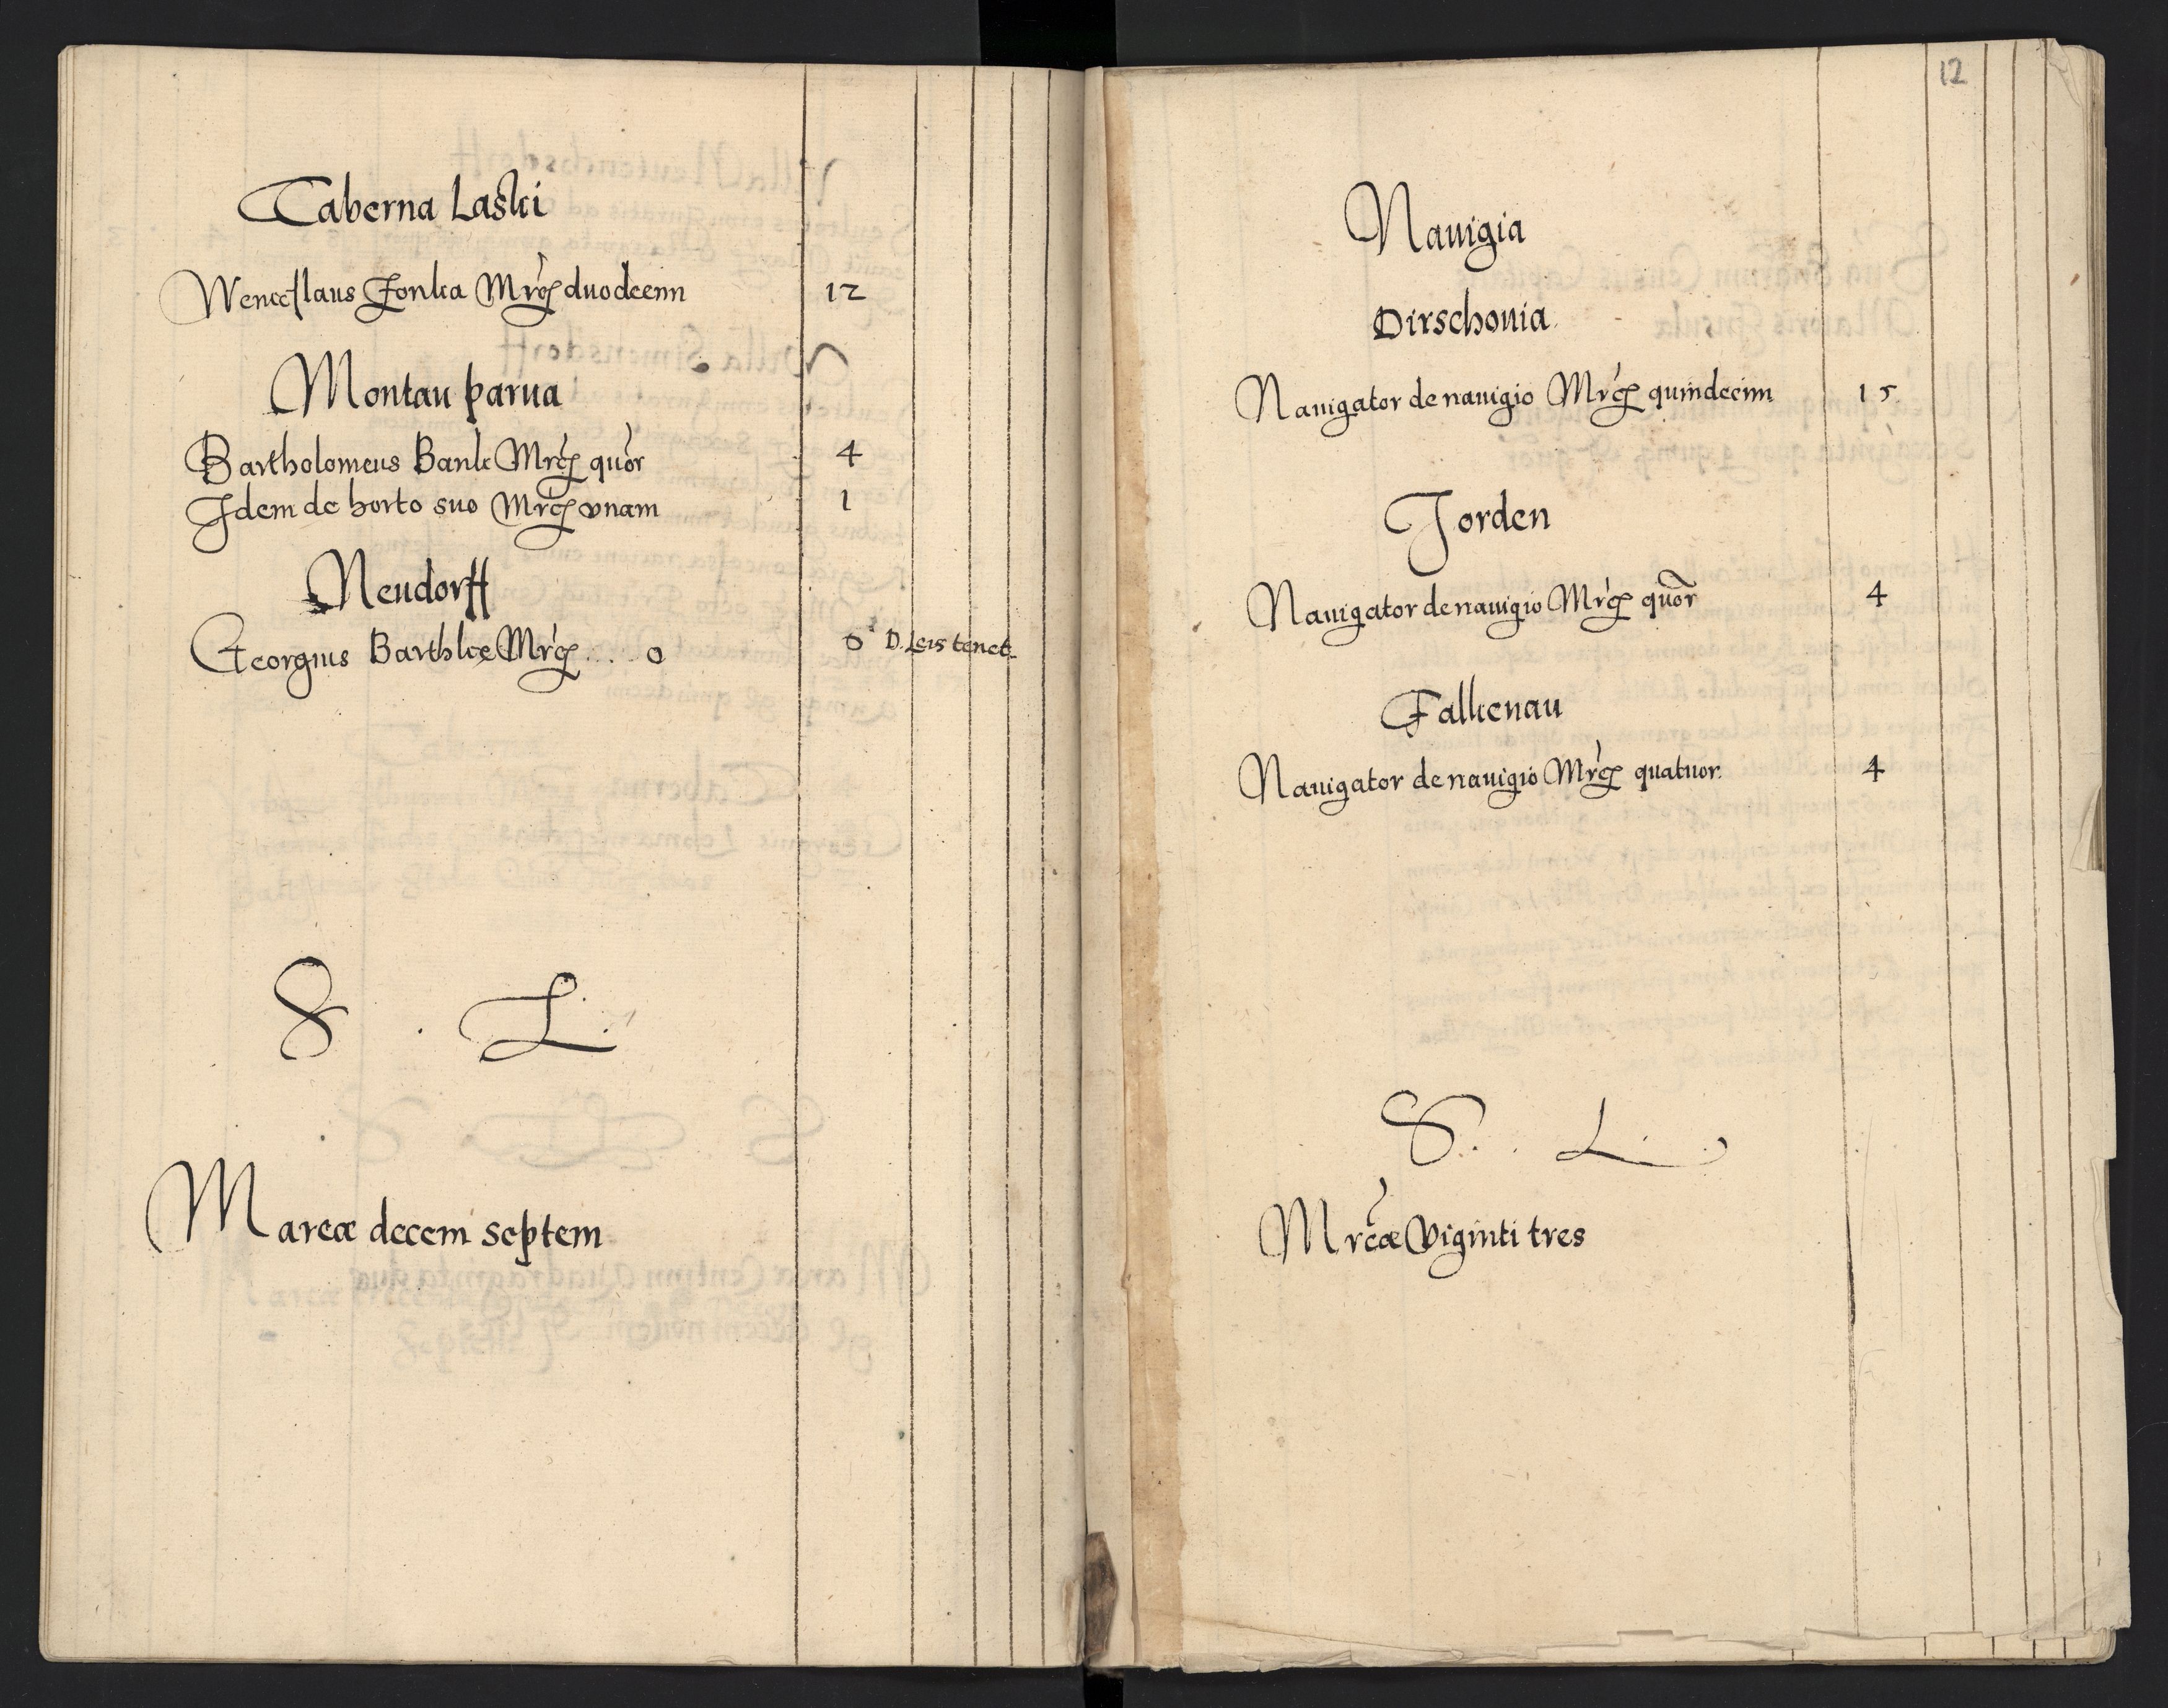 Taberna Laski
Wenceslaus Jonka Mrcz duodecim 12
Montau parua
Bartholomeus Bank Mrcz quor 4
Idem de horto suo Mrcz vnam 1
Neudorff
Georgius Barthke Mrcz .... 0 0 D. Leis tenet.
S . L.
Marcæ decem septem
12
Nauigia
Dirschouia.
Nauigator de nauigio Mrcz quindecim 15.
Jorden
Nauigator de nauigio Mrcz quor 4
Falkenau
Nauigator de nauigio Mrcz quatuor. 4
S. . L.
Mrcæ Viginti tres